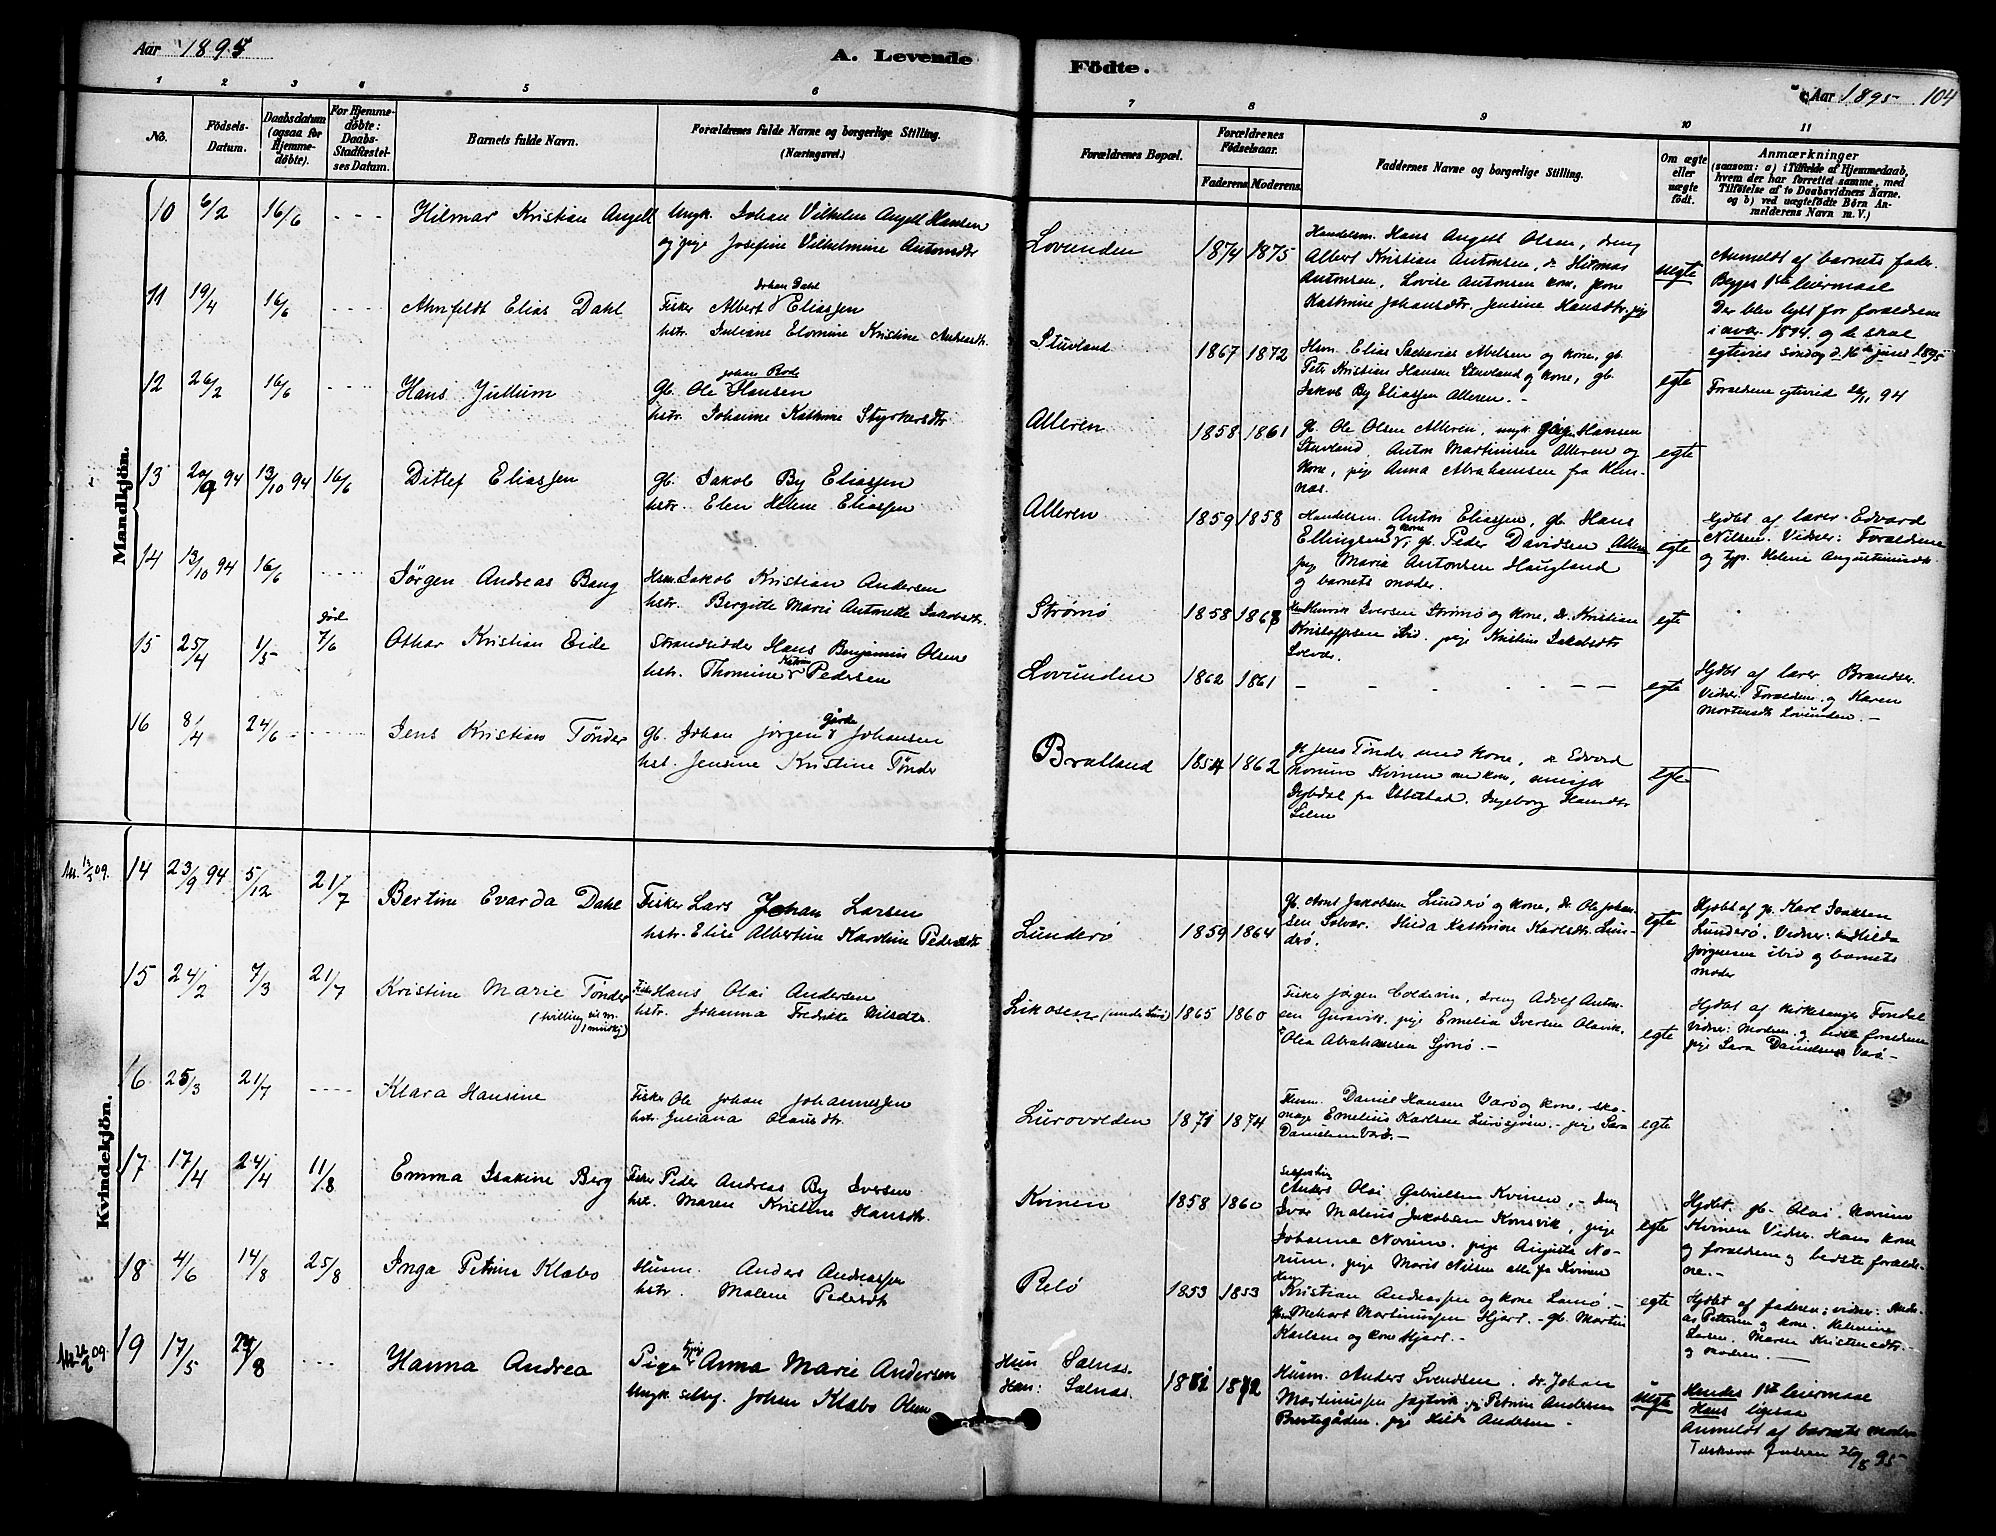 Aar 1895
A. Levende
Födte.
Aar 1895 104
1 2 3 4 5 6 7 8 9 10 11
No.
Födsels-Datum.
Daabsdatum (ogsaa for Hjemmedöbte).
For Hjemmedöbte: Daabs-Stadfæstelses Datum.
Barnets fulde Navn.
Forældrenes fulde Navne og borgerlige Stilling.
(Næringsvei.)
Forældrenes Bopæl.
Forældrenes Födselsaar.
Faderens. Moderens.
Faddernes Navne og borgerlige Stilling.
Om ægte eller uægte födt.
Anmærkninger
(saasom: a) i Tilfælde af Hjemmedaab,
hvem der har forrettet samme, med
Tilföielse af to Daabsvidners Navne.
og b) ved uægtefödte Börn An-
melderens Navn m. V.)
Mandkjön.
10 6/2 16/6 Hilmar Kristian Angell
Ungk. Johan Vilhelm Angell Hansen
og pige Josefine Vilhelmine Antonsdtr
Lovunden 1874 1875
Handelsm. Hans Angell Olsen, dreng
Albert Kristian Antonsen, dr. Hilmar
Antonsen, Lovise Antonsen kone, kone
Kathrine Johansdtr, Jensine Hansdtr. pige
uegte
Anmeldt af barnets fader.
Begges 1ste leiermaal
Der blev lyst for forældrene
i 1894 og de skal
egtevies søndag d. 16de juni 1895
11 19/4 16/6 Ahnfeldt Elias Dahl
Fisker Albert Johan Dahl Eliassen
hstr. Juliane Elomine Kristine Andreasdtr.
Stuvland 1867 1872
Hsm. Elias Sakarias Abelsen og kone, gb.
Petr Kristian Hansen Stuvland og kone, gb.
Jakob By Eliassen Alleren.
egte
Forældrene egteviet 94
12 26/2 16/6 Hans Jullum
gb. Ole Johan Rode Hansen
hstr. Johanne Kathrine Styrkersdtr
Alleren 1858 1861
gb. Ole Olsen Alleren, ungk. Hansen
Stuvland, Anton Martinusen Alleren og
kone, pige Anna Abrahamsen fra Hem-
nes.
egte
13 20/9 94 13/10 94 16/6 Ditlef Eliassen
gb. Jakob By Eliassen
hstr. Elen Helene Eliassen
Alleren 1859 1858
Handelsm. Anton Eliassen, gb. Hans
Ellingsen og kone, gb. Peder Davidsen Alleren
pige Marie Antonsen Haugland
og barnets moder.
egte
Hjdbt af lærer Edvard
Nilsen. Vidner: Forældrene
og Helene Augustinusdtr.
14 13/10 94 16/6 Jörgen Andreas Bang
Hsm. Jakob Kristian Andersen
hstr. Bergitte Marie Antonette Jakobsdtr.
Strömö 1858 1867
Henrik Iversen Strömö og kone, dr. Kristian
Kristoffersen ibid. pige Kristine Jakobsdtr
Solvær.
egte
15 25/4 1/5 död 7/6 Othar Kristian Eide
Strandsidder Hans Benjamin Olsen
hstr. Thomine Pedersen
Lovunden 1862 1861
egte
Hjdbt af lærer Brandser.
Vidner: Forældrene og Karen
Mortensdtr Lovunden.
16 8/4 24/6 Jens Kristian Tönder
gb. Johan Jörgen Gårde Johansen
hst. Jensine Kristine Tönder
Bratland 1854 1862
gb Jens Tönder med kone, Edvard
Norum Kvinen med kone,
Dybdal fra Ibbestad. Ingeborg Hansdtr
Selen
egte
Kvindekjön.
14 23/9 94 5/12 21/7 Bertine Evarda Dahl
Fisker Lars Johan Larsen
hstr. Elise Albertine Karoline Pedersdtr
Lunderö 1859 1864
gb. Arnt Jakobsen Lunderö og kone, dr. Ole Johan-
sen Solvær. Hilda Kathrine Karlsdtr. Lun-
derö.
egte
Hjdbt af Karl Isaksen
Lunderö. Vidner: Hilda
Jörgensen ibid og barnets
moder
15 24/2 7/3 21/7 Kristine Marie Tönder
Fisker Hans Olai Andersen
hstr. Johanna Fredrikke Nilsdtr.
Likosen (under Lurö) 1865 1860
Fisker Jörgen Coldevin, dreng Adolf Anton-
sen Guravik, pige Emelia Iversen Olavik,
Olea Abrahamsen Sjonö.
egte
Hjdbt af kirkesanger Fondal
vidner: Moderen og
pige Sara Danielsen Varö
16 25/3 21/7 Klara Hansine
Fisker Ole Johan Johannessen
hstr. Juliana Olausdtr.
Lurovolden 1871 1874
Husm. Daniel Hansen Varö og kone, sko-
mager Emelius Karlsen Lurösjöen. pige Sara
Danielsen Varö.
egte
17 17/4 24/4 11/8 Emma Isakine Berg
Fisker Peder Andreas By Iversen
hst. Maren Kristine Hansdtr.
Kvinen 1858 1860
Anders Olai Gabrielsen Kvinen, dreng
Ivar Malrius Jakobsen Konsvik, pige
Johanna Norum, pige Augusta No-
rum, pige Marit Nilsen alle fra Kvinen
egte
Hjdbt. gb. Olai Norum
Kvinen Vidner: Hans kone
og forældrene og bedste foræld-
rene.
18 4/6 14/8 25/8 Inga Petrine Klæbo
Husm. Anders Andreassen
hstr. Malene Pedersdtr
Relö 1853 1853
Kristian Andreassen og kone Lamö.
Mekart Martinussen Hjart. gb. Martin
Karlsen og kone Hjart.
egte
Hjdbt af faderen; vidner: Andre-
as Petersen og kone. Helmine
Larsen. Maren Kristensdtr.
og moderen.
19 17/5 8 Hanna Andrea
Pige Anna Marie Andersen
Ungk. selvf. Johan Klæbo Olsen
Hun Selnæs.
Han: Selnæs.
1872
Husm. Anders Svendsen, dr. Johan
Martinussen Jægtvik, pige Petrine Andersen
Prestegården. pige Hilda Andersen
uegte
Hendes 1ste leiermaal
Hans ligesaa
Anmeldt af barnets moder
95